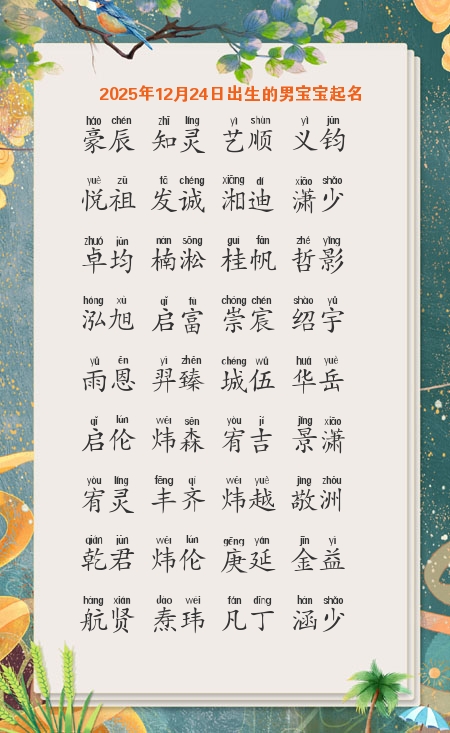 2025年12月24日出生的男宝宝起名
háo chén zhī líng yì shùn yì jūn
豪辰 知灵 艺顺 义钧
yuè zǔ fā chéng xiāng dí xiāo shào
悦祖 发诚 湘迪 潇少
zhuó jūn nán sōng guì fān zhé yǐng
卓均 楠淞 桂帆 哲影
hóng xù qǐ fù chóng chén shào yǔ
泓旭 启富 崇宸 绍宇
yǔ ēn yì zhēn chéng wǔ huá yuè
雨恩 羿臻 城伍 华岳
qǐ lún wěi sēn yòu jí jǐng xiāo
启伦 炜森 宥吉 景潇
yòu líng fēng qí wěi yuè jìng zhōu
宥灵 丰齐 炜越 敬洲
qián jūn wěi lún gēng yán jīn yì
乾君 炜伦 庚延 金益
háng xián dào wěi fán dīng hán shào
航贤 焘玮 凡丁 涵少